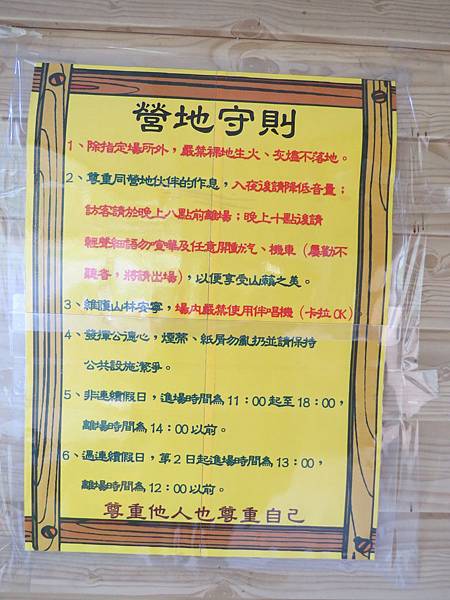 營地守則
1、除指定場所外，嚴禁裸地生火、灰燼不落地。
2、尊重同營地伙伴的作息，入夜後請降低音量；
訪客請於晚上八點前離場；晚上十點後請
輕聲細語勿喧嘩及任意開動汽、機車（屢勸不
聽者，將請出場），以便享受山巔之美。
3、維護山林安寧，場內嚴禁使用伴唱機（卡拉OK）。
4、發揮公德心，煙蒂、紙屑勿亂扔並請保持
公共設施潔淨。
5、非連續假日，進場時間為11：00起至18：00，
離場時間為14：00以前。
6、遇連續假日，第2日起進場時間為13：00，
離場時間為12：00以前。
尊重他人也尊重自己